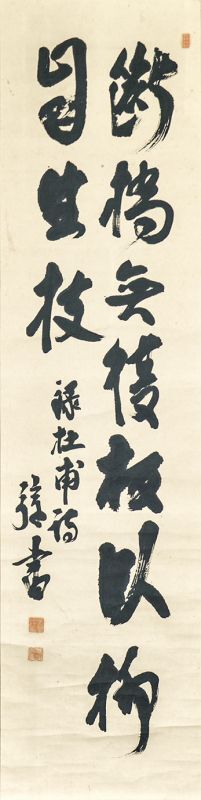 斷橋無復板臥柳
自生枝
録杜甫詩
書